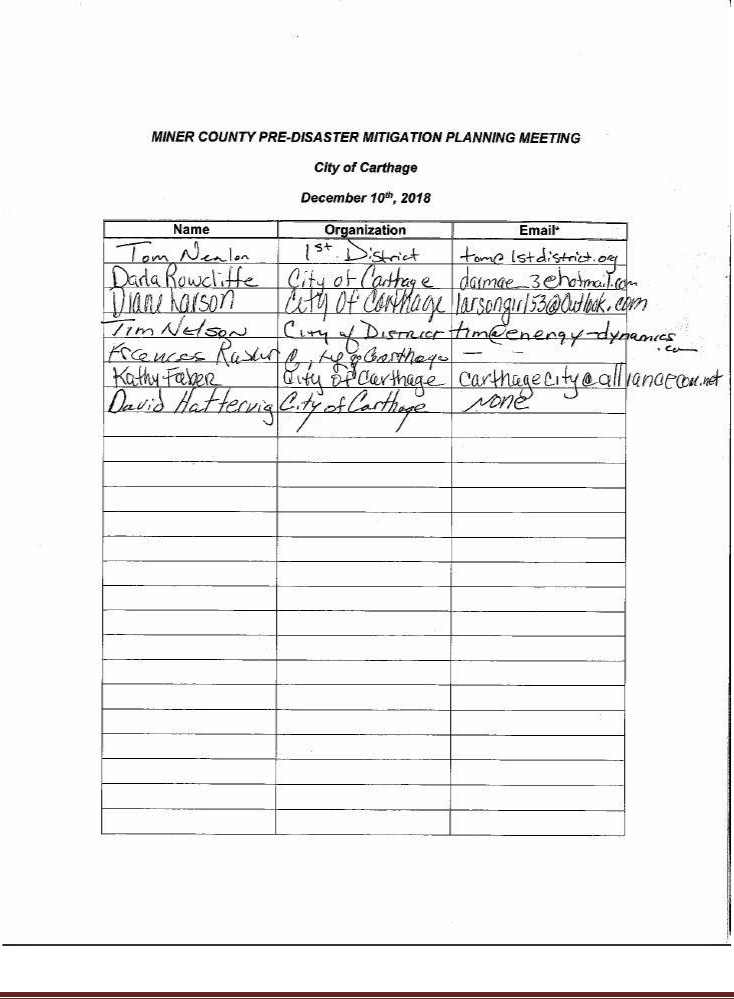 MINER COUNTY PRE-DISASTER MITIGATION PLANNING MEETING
City of Carthage
December 10th, 2018
Name Organization Email*
Tom Nealon 1st District tom@1stdistrict.org
Darla Rowcliffe City of Carthage darmae_3@hotmail.com
Diane Larson City Of Carthage larsongirl53@Outlook.com
Tim Nelson City of District tim@energy-dynamics.com
Frances City of Carthage — —
Kathy Faber City of Carthage carthagecity@alliancecom.net
David Hattervig City of Carthage None